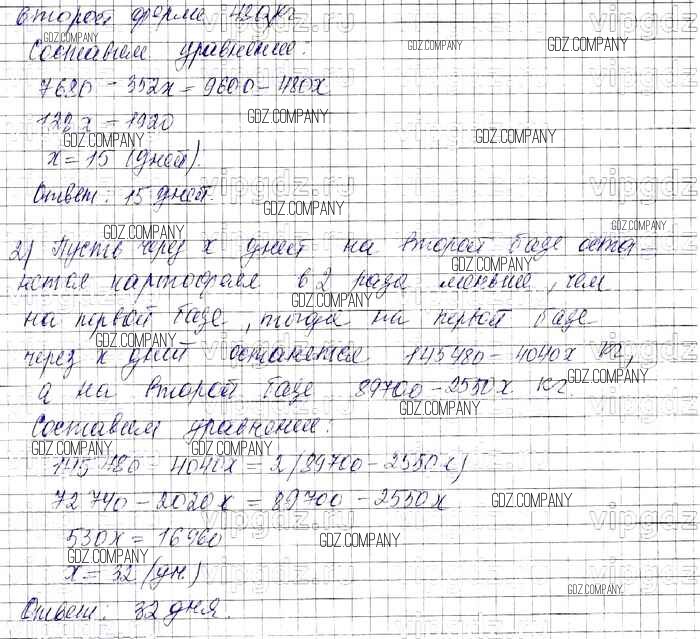 второй ферме 480 кг
Составим уравнение:
7680 - 352x = 9600 - 480x
128x = 1920
x = 15 (дней).
Ответ: 15 дней.
2) Пусть через x дней на второй базе оста-
нется картофеля в 2 раза меньше, чем
на первой базе, тогда на первой базе
через x дней останется 145480 - 4040x кг,
а на второй базе 89700 - 2550x кг
Составим уравнение:
145 480 - 4040x = 2(89700 - 2550x)
72 740 - 2020x = 89700 - 2550x
530x = 16960
x = 32 (дн.)
Ответ: 32 дня.
GDZ.COMPANY
vipgdz.ru